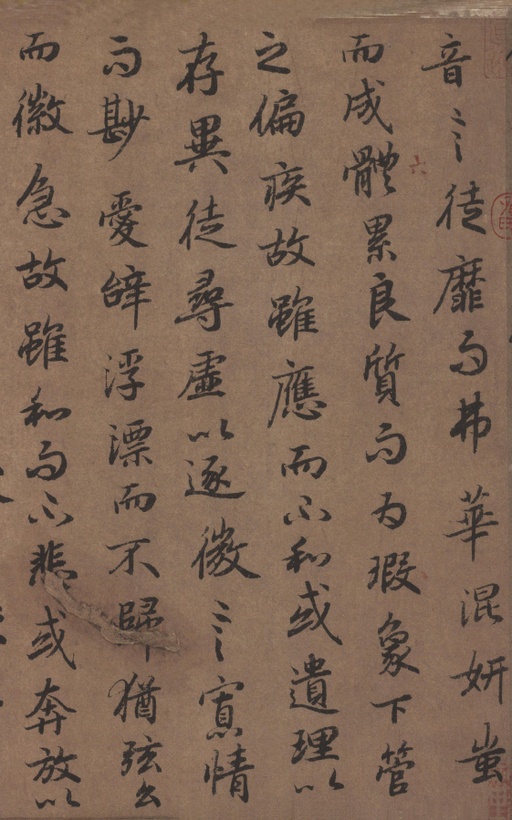 音言徒靡而弗華混妍蚩
而成體累良質而為瑕象下管
之偏疾故雖應而不和或遺理以
存異徒尋虛以逐微言寡情
而尠愛辝浮漂而不歸猶弦么
而徽急故雖和而不悲或奔放以